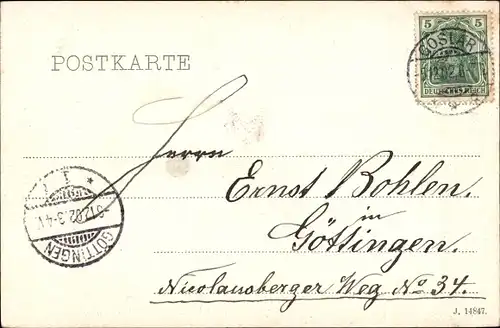 5 5
GOSLAR
DEUTSCHES REICH
POSTKARTE
Herrn
Ernst Bohlen.
in
Göttingen.
Nicolausberger Weg No 34.
GÖTTINGEN
12.02.3-4
J. 14847.